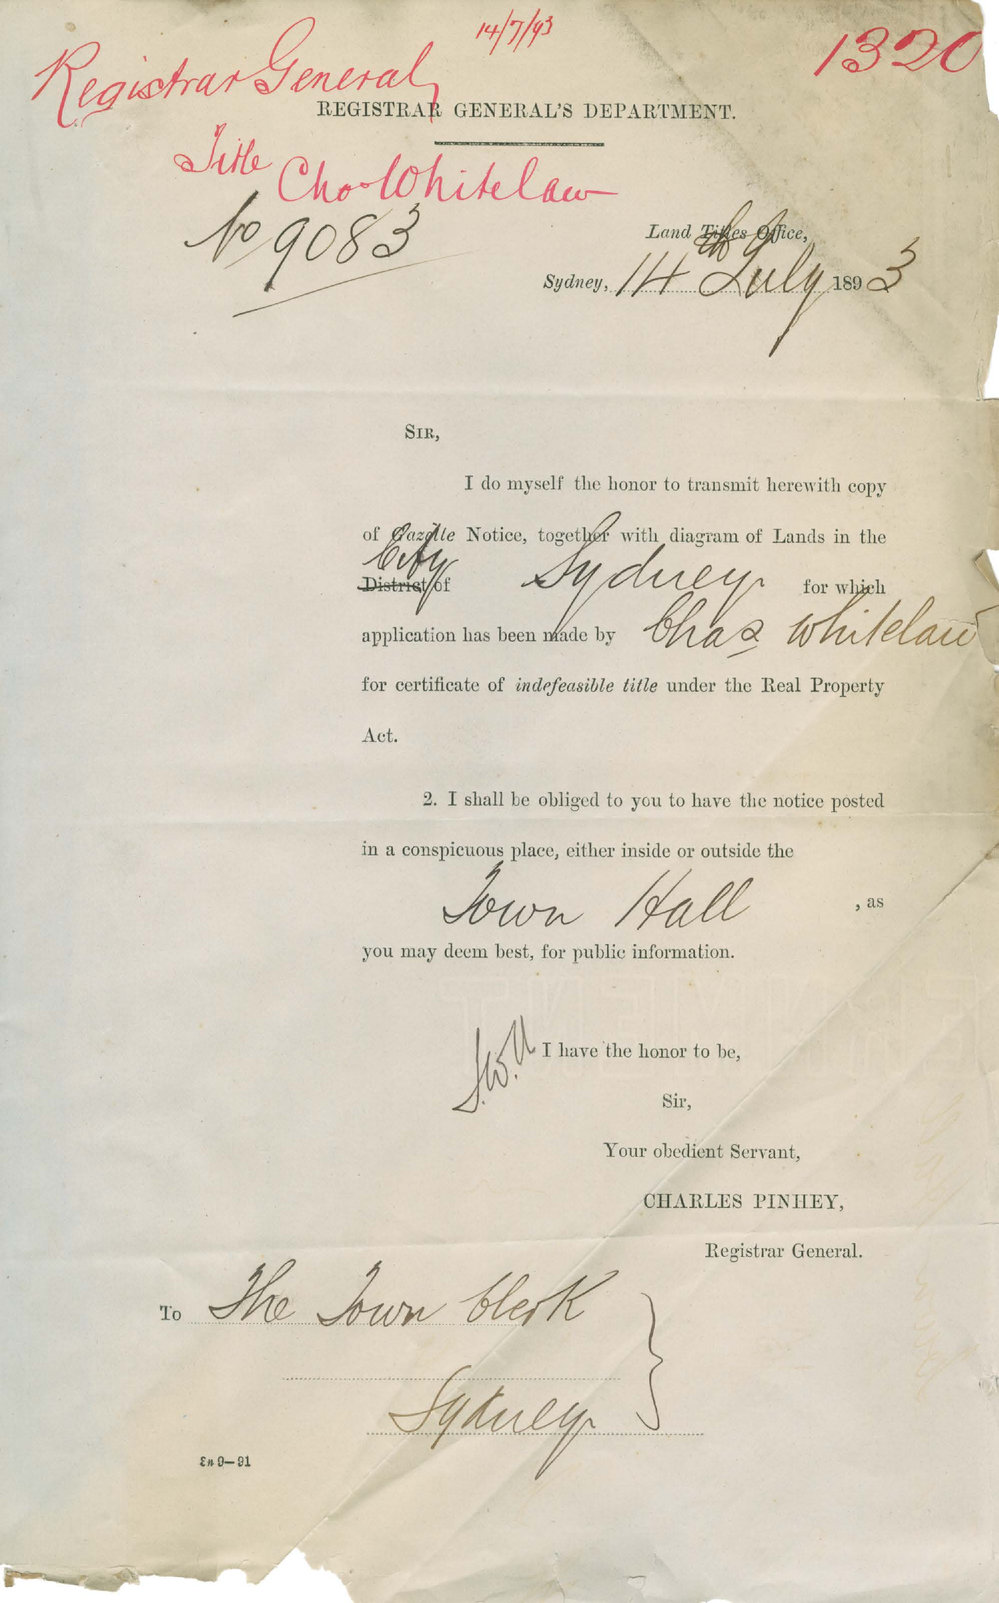 14/7/93
1320
Registrar General
REGISTRAR GENERAL'S DEPARTMENT.
Title Chas Whitelaw
No 9083
Land Titles Office,
Sydney, 14th July 1893
SIR,
I do myself the honor to transmit herewith copy
of Gazette Notice, together with diagram of Lands in the
City
District of Sydney for which
application has been made by Chas Whitelaw
for certificate of indefeasible title under the Real Property
Act.
2. I shall be obliged to you to have the notice posted
in a conspicuous place, either inside or outside the
Town Hall , as
you may deem best, for public information.
I have the honor to be,
Sir,
Your obedient Servant,
CHARLES PINHEY,
Registrar General.
To The Town Clerk
Sydney
9—91